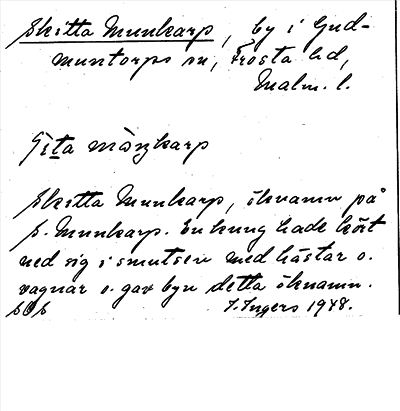 Skitta Munkarp, by i Gud-
muntorps sn, Frosta hd,
Malm. l.
Skitta Munkarp, öknamn på
s. Munkarp. En kung hade kört
ned sig i smutsen med hästar o.
vagnar o. gav byn detta öknamn.
I. Ingers 1948.